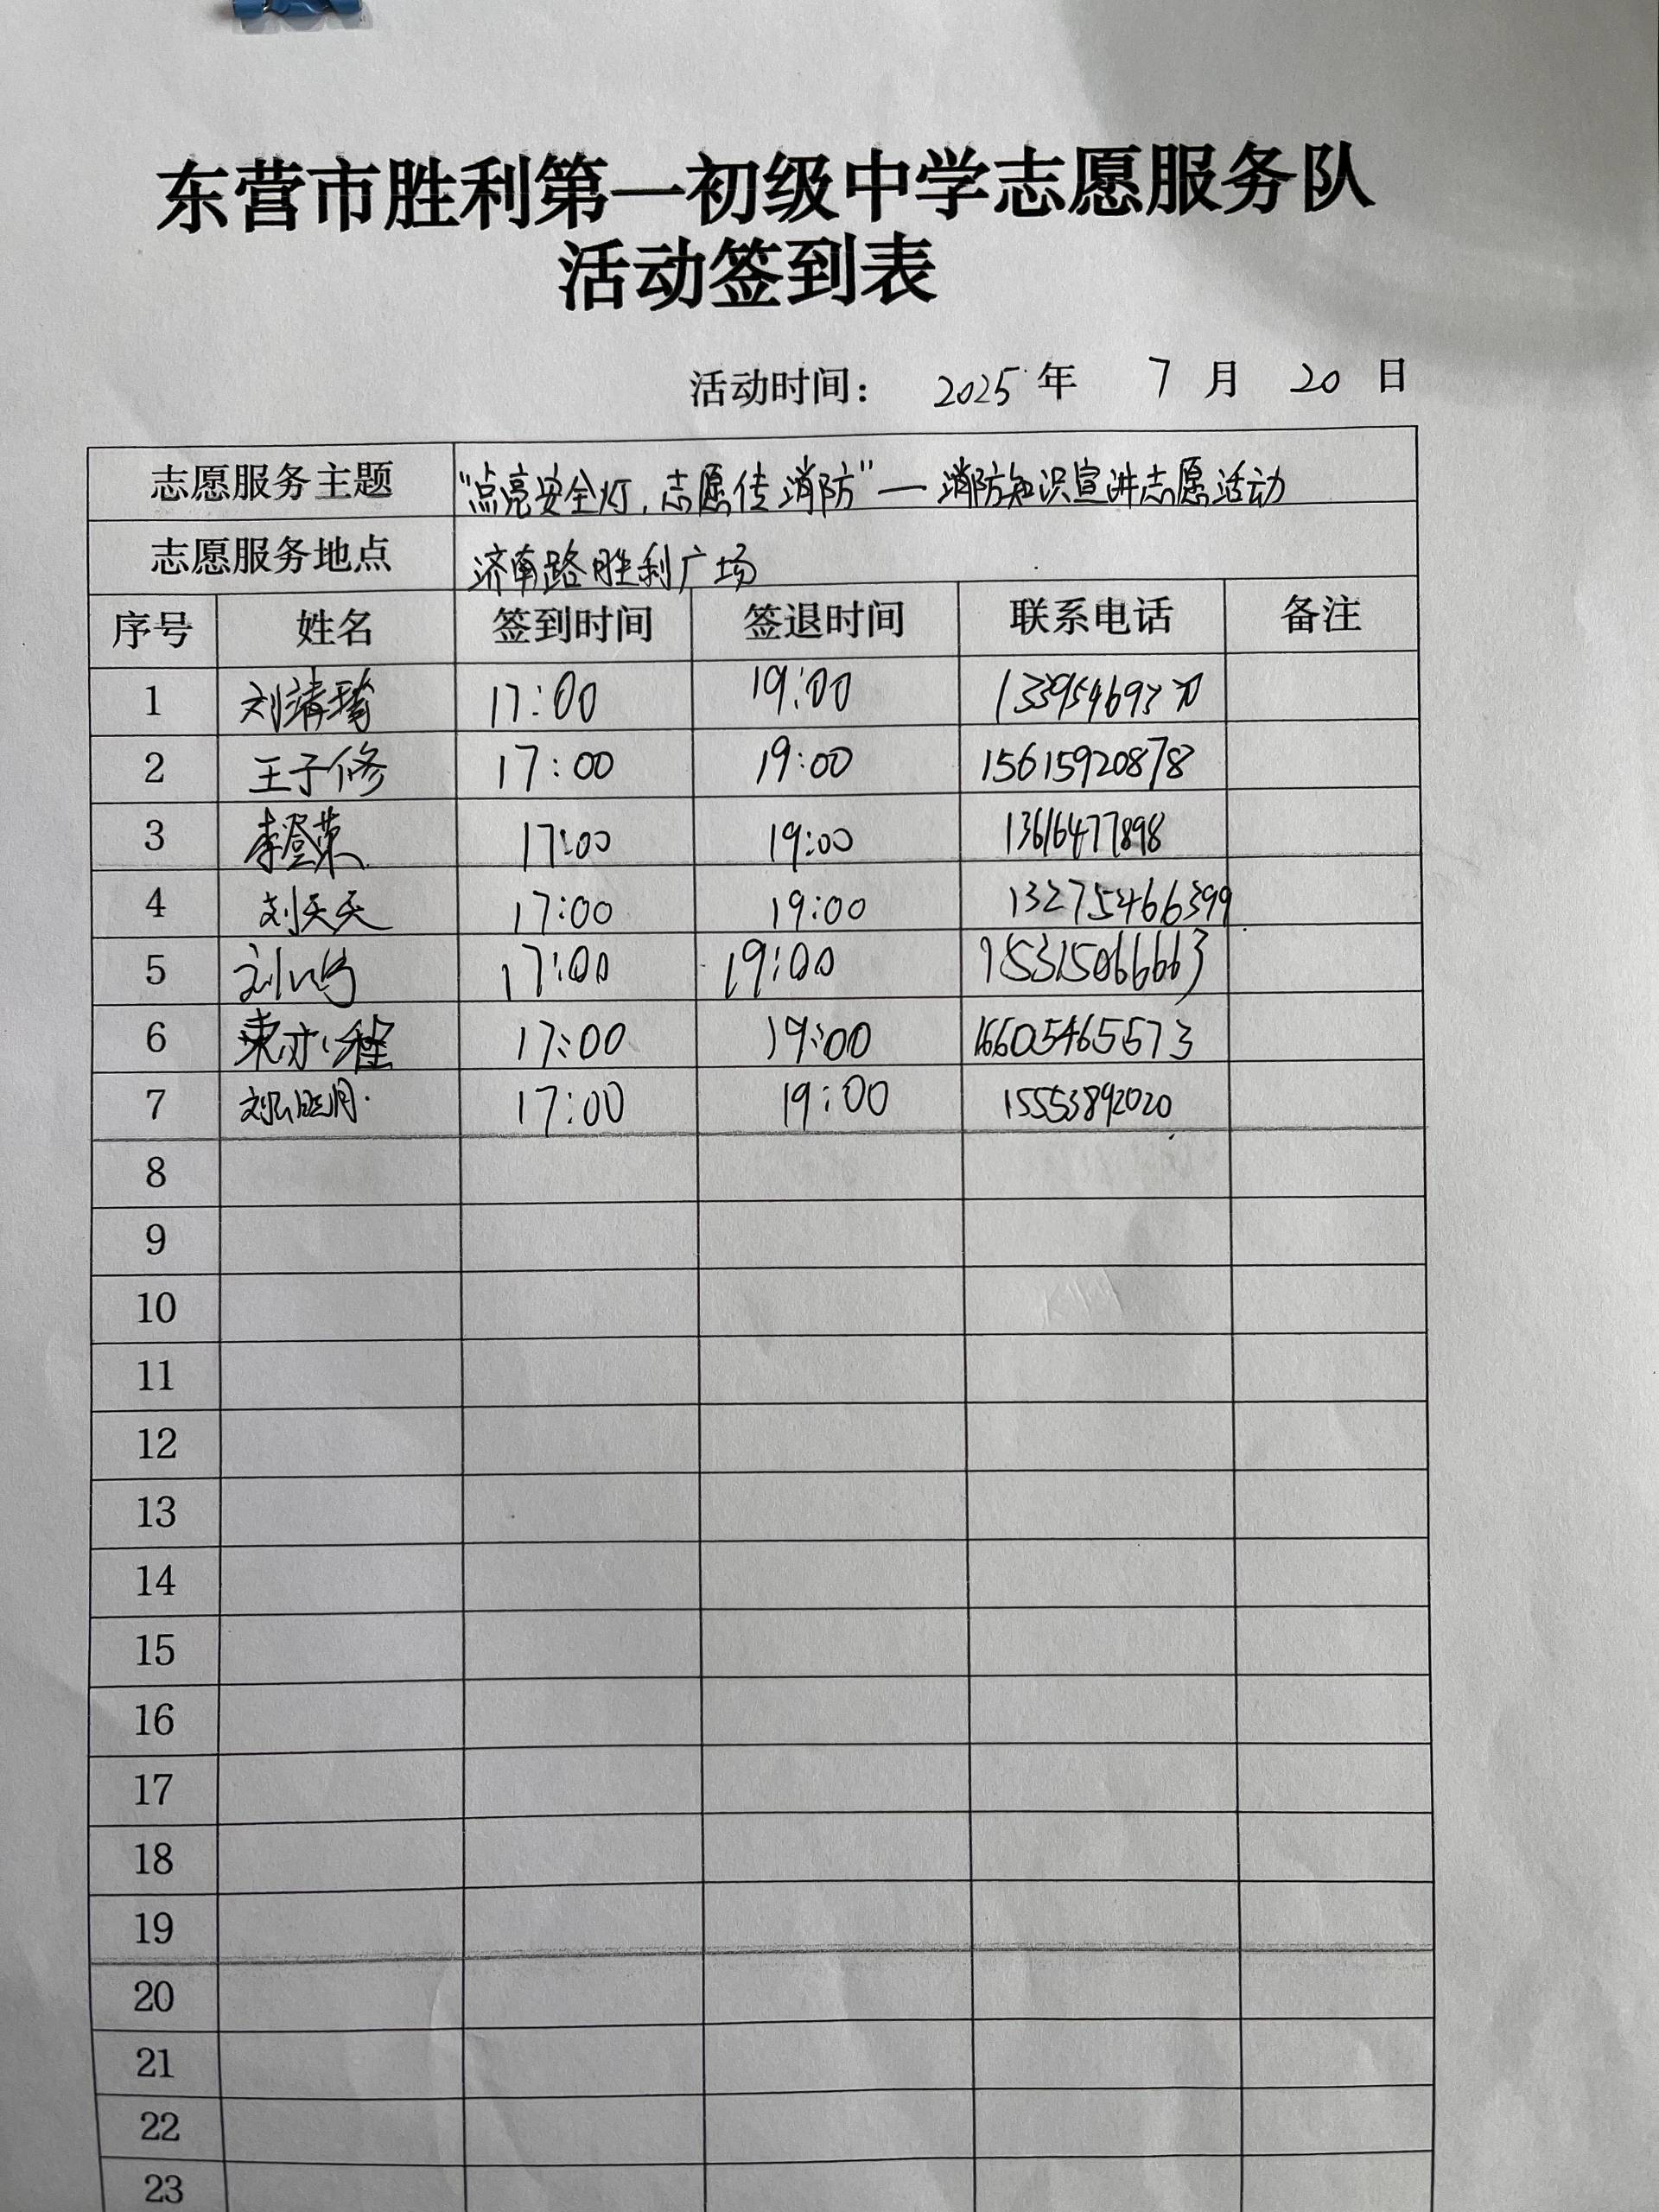 东营市胜利第一初级中学志愿服务队
活动签到表
活动时间： 2025 年 7 月 20 日
志愿服务主题 “点亮安全灯，志愿传消防”—消防知识宣讲志愿活动
志愿服务地点 济南路胜利广场
序号 姓名 签到时间 签退时间 联系电话 备注
1 刘清 17:00 19:00 13395469370
2 王子修 17:00 19:00 15615920878
3 李登荣 17:00 19:00 13616477898
4 刘天天 17:00 19:00 13275466399
5 刘 17:00 19:00 15315066663
6 17:00 19:00 16605465573
7 17:00 19:00 15553892020
8
9
10
11
12
13
14
15
16
17
18
19
20
21
22
23